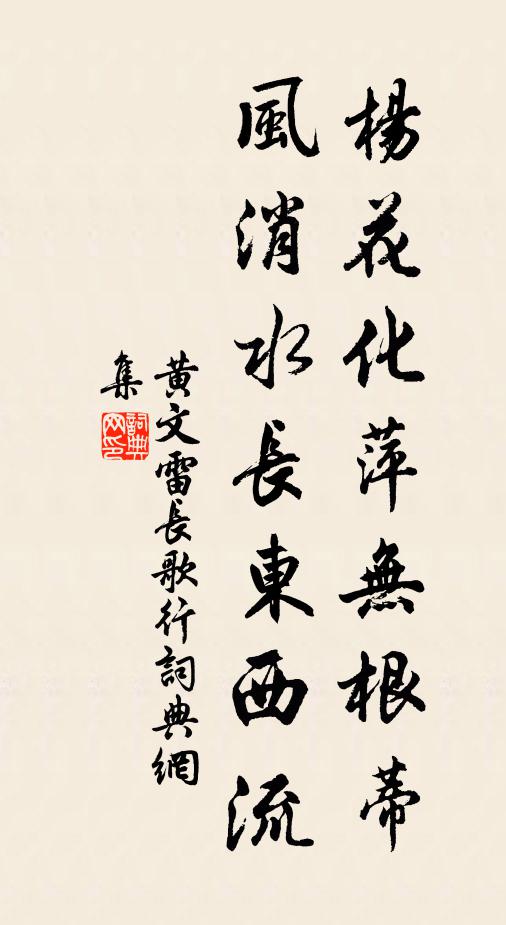 楊花化萍無根蒂
風消水長東西流
黃文雷長歌行詞典網
集
詞典
网印